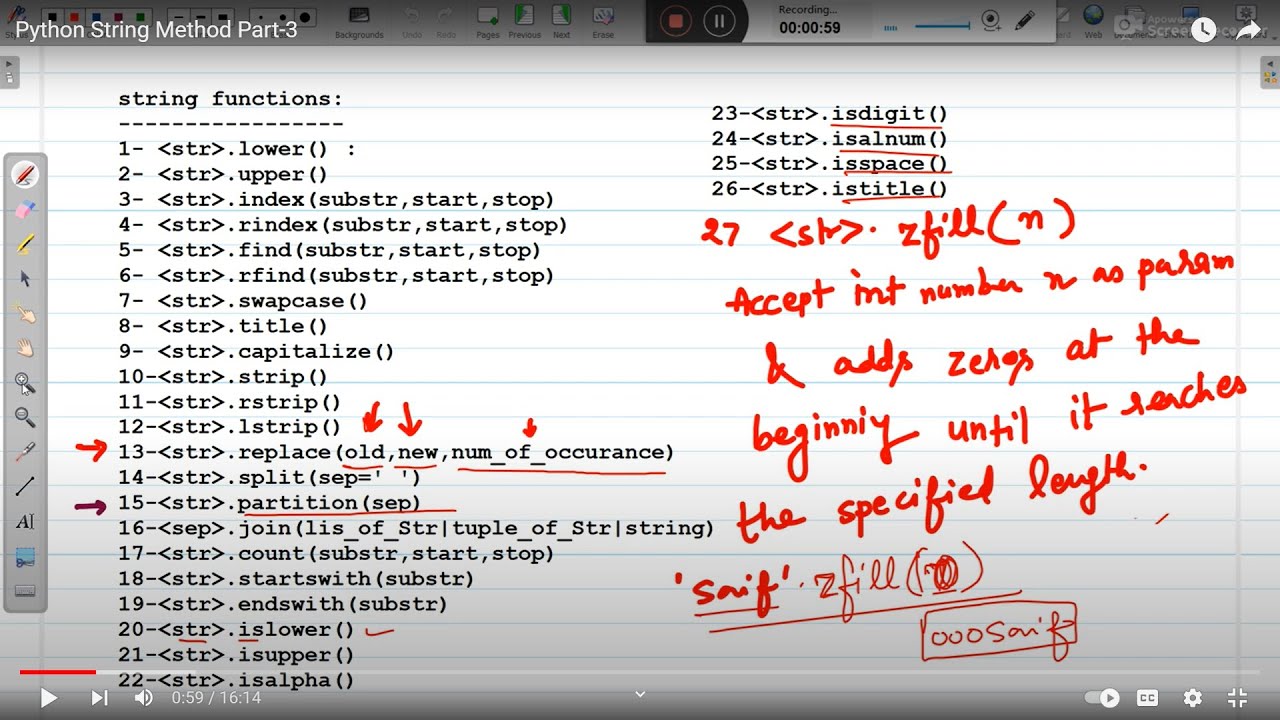 Python String Method Part-3
Recording...
00:00:59
Backgrounds
Undo
Redo
Pages
Previous
Next
Erase
Web
string functions:
-----------------
1- <str>.lower() :
2- <str>.upper()
3- <str>.index(substr,start,stop)
4- <str>.rindex(substr,start,stop)
5- <str>.find(substr,start,stop)
6- <str>.rfind(substr,start,stop)
7- <str>.swapcase()
8- <str>.title()
9- <str>.capitalize()
10-<str>.strip()
11-<str>.rstrip()
12-<str>.lstrip()
13-<str>.replace(old,new,num_of_occurance)
14-<str>.split(sep=' ')
15-<str>.partition(sep)
16-<sep>.join(lis_of_Str|tuple_of_Str|string)
17-<str>.count(substr,start,stop)
18-<str>.startswith(substr)
19-<str>.endswith(substr)
20-<str>.islower()
21-<str>.isupper()
22-<str>.isalpha()
23-<str>.isdigit()
24-<str>.isalnum()
25-<str>.isspace()
26-<str>.istitle()
27 <str>. zfill(n)
Accept int number n as param
& adds zeros at the
beginniy until it reaches
the specified length.
'Saif'. zfill(
000Saif
AI
0:59 / 16:14
CC